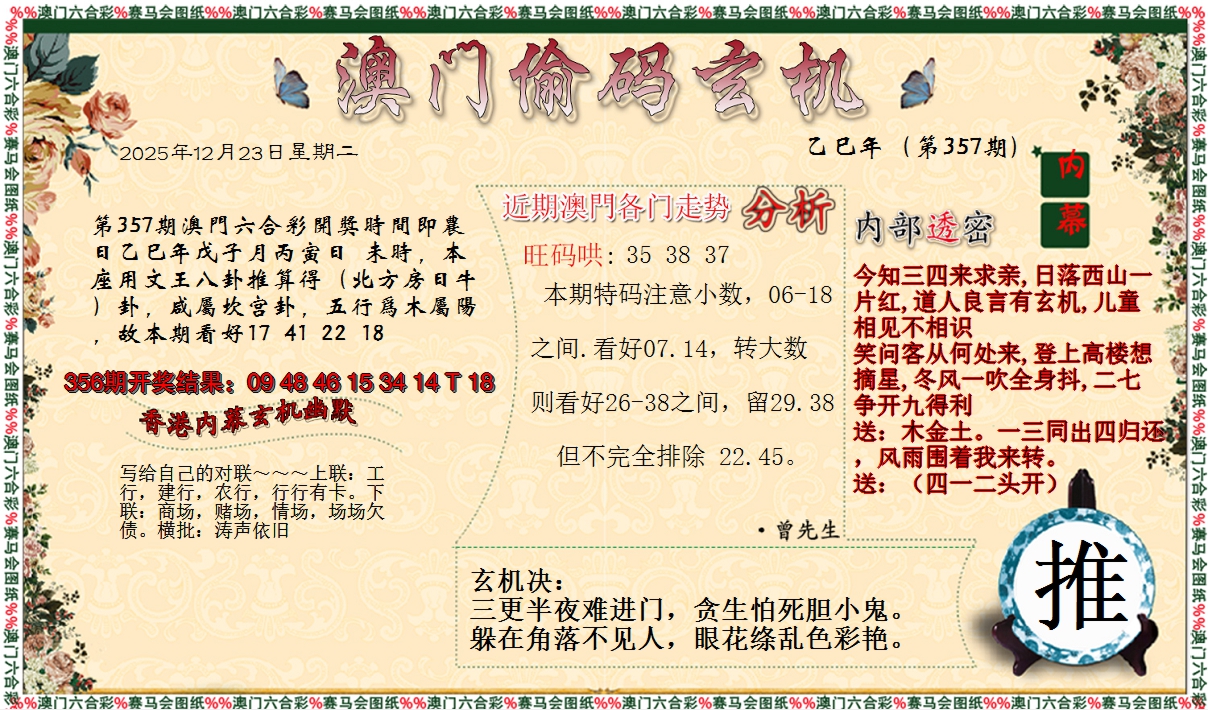 %%澳门六合彩%赛马会图纸%%澳门六合彩%赛马会图纸%%澳门六合彩%赛马会图纸%%澳门六合彩%赛马会图纸%%澳门六合彩%赛马会图纸%%澳门六合彩%赛马会图纸%%
澳门偷码玄机
2025年12月23日星期二
乙巳年（第357期）
内幕
第357期澳門六合彩開獎時間即農
日乙巳年戊子月丙寅日 未時，本
座用文王八卦推算得（北方房日牛
）卦，咸屬坎宫卦，五行爲木屬陽
，故本期看好17 41 22 18
356期开奖结果：09 48 46 15 34 14 T 18
香港内幕玄机幽默
写给自己的对联～～～上联：工
行，建行，农行，行行有卡。下
联：商场，赌场，情场，场场欠
债。横批：涛声依旧
近期澳門各门走势 分析
旺码哄: 35 38 37
本期特码注意小数，06-18
之间.看好07.14，转大数
则看好26-38之间，留29.38
但不完全排除 22.45。
·曾先生
内部透密
今知三四来求亲,日落西山一
片红,道人良言有玄机,儿童
相见不相识
笑问客从何处来,登上高楼想
摘星,冬风一吹全身抖,二七
争开九得利
送：木金土。一三同出四归还
，风雨围着我来转。
送：（四一二头开）
玄机决：
三更半夜难进门，贪生怕死胆小鬼。
躲在角落不见人，眼花缭乱色彩艳。
推
%%澳门六合彩%赛马会图纸%%澳门六合彩%赛马会图纸%%澳门六合彩%赛马会图纸%%澳门六合彩%赛马会图纸%%澳门六合彩%赛马会图纸%%澳门六合彩%赛马会图纸%%